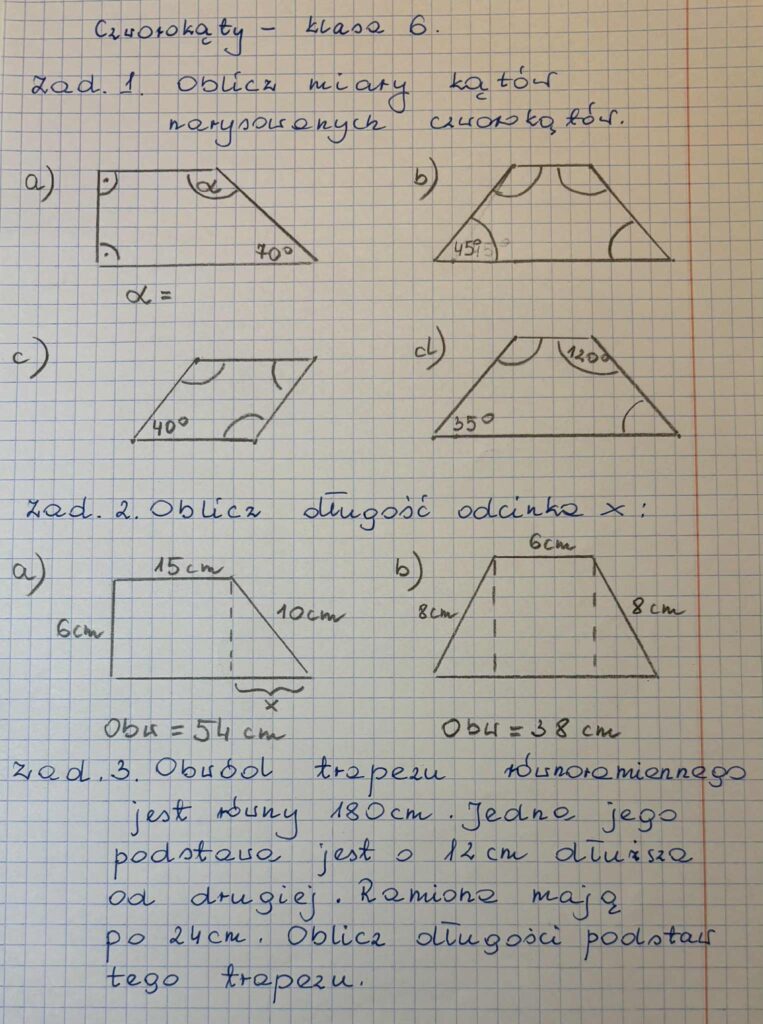 Czworokąty - klasa 6.
Zad. 1. Oblicz miary kątów
narysowanych czworokątów.
a)
α
70°
α =
b)
45°
c)
40°
d)
120°
35°
Zad. 2. Oblicz długość odcinka x:
a)
15 cm
6cm
10cm
x
Obw = 54 cm
b)
6cm
8cm
8cm
Obw = 38 cm
Zad. 3. Obwód trapezu równoramiennego
jest równy 180cm. Jedna jego
podstawa jest o 12 cm dłuższa
od drugiej. Ramiona mają
po 24cm. Oblicz długości podstaw
tego trapezu.